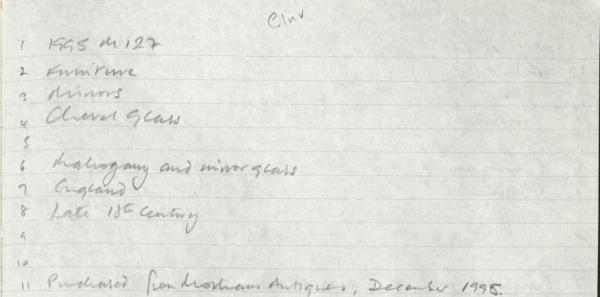 Clnr
1 1995 M 127
2 Furniture
3 Mirrors
4 Cheval Glass
5
6 Mahogany and mirror glass
7 England
8 Late 18th Century
9
10
11 Purchased from Antiques, December 1995.